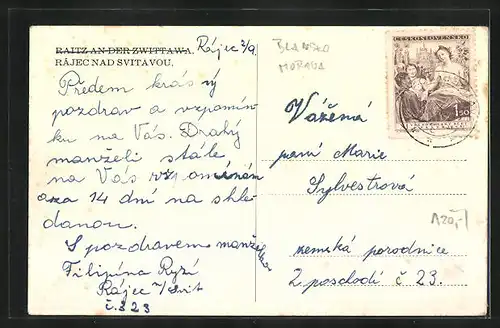 RAITZ AN DER ZWITTAWA. Rájec 3/9
RÁJEC NAD SVITAVOU.
Předem krásný
pozdrav a vzpomín
ku na Vás. Drahý
manželi stále
na Vás
14 dní na shle
danou.
S pozdravem manželka
Filipína Ryzí
Rájec n/Svit
č. 323
BLANSKO
MORAVA
ČESKOSLOVENSKO
1.50
Vážená
paní Marie
Sylvestrová
zemská porodnice
2 poschodí č 23.
A20,-/